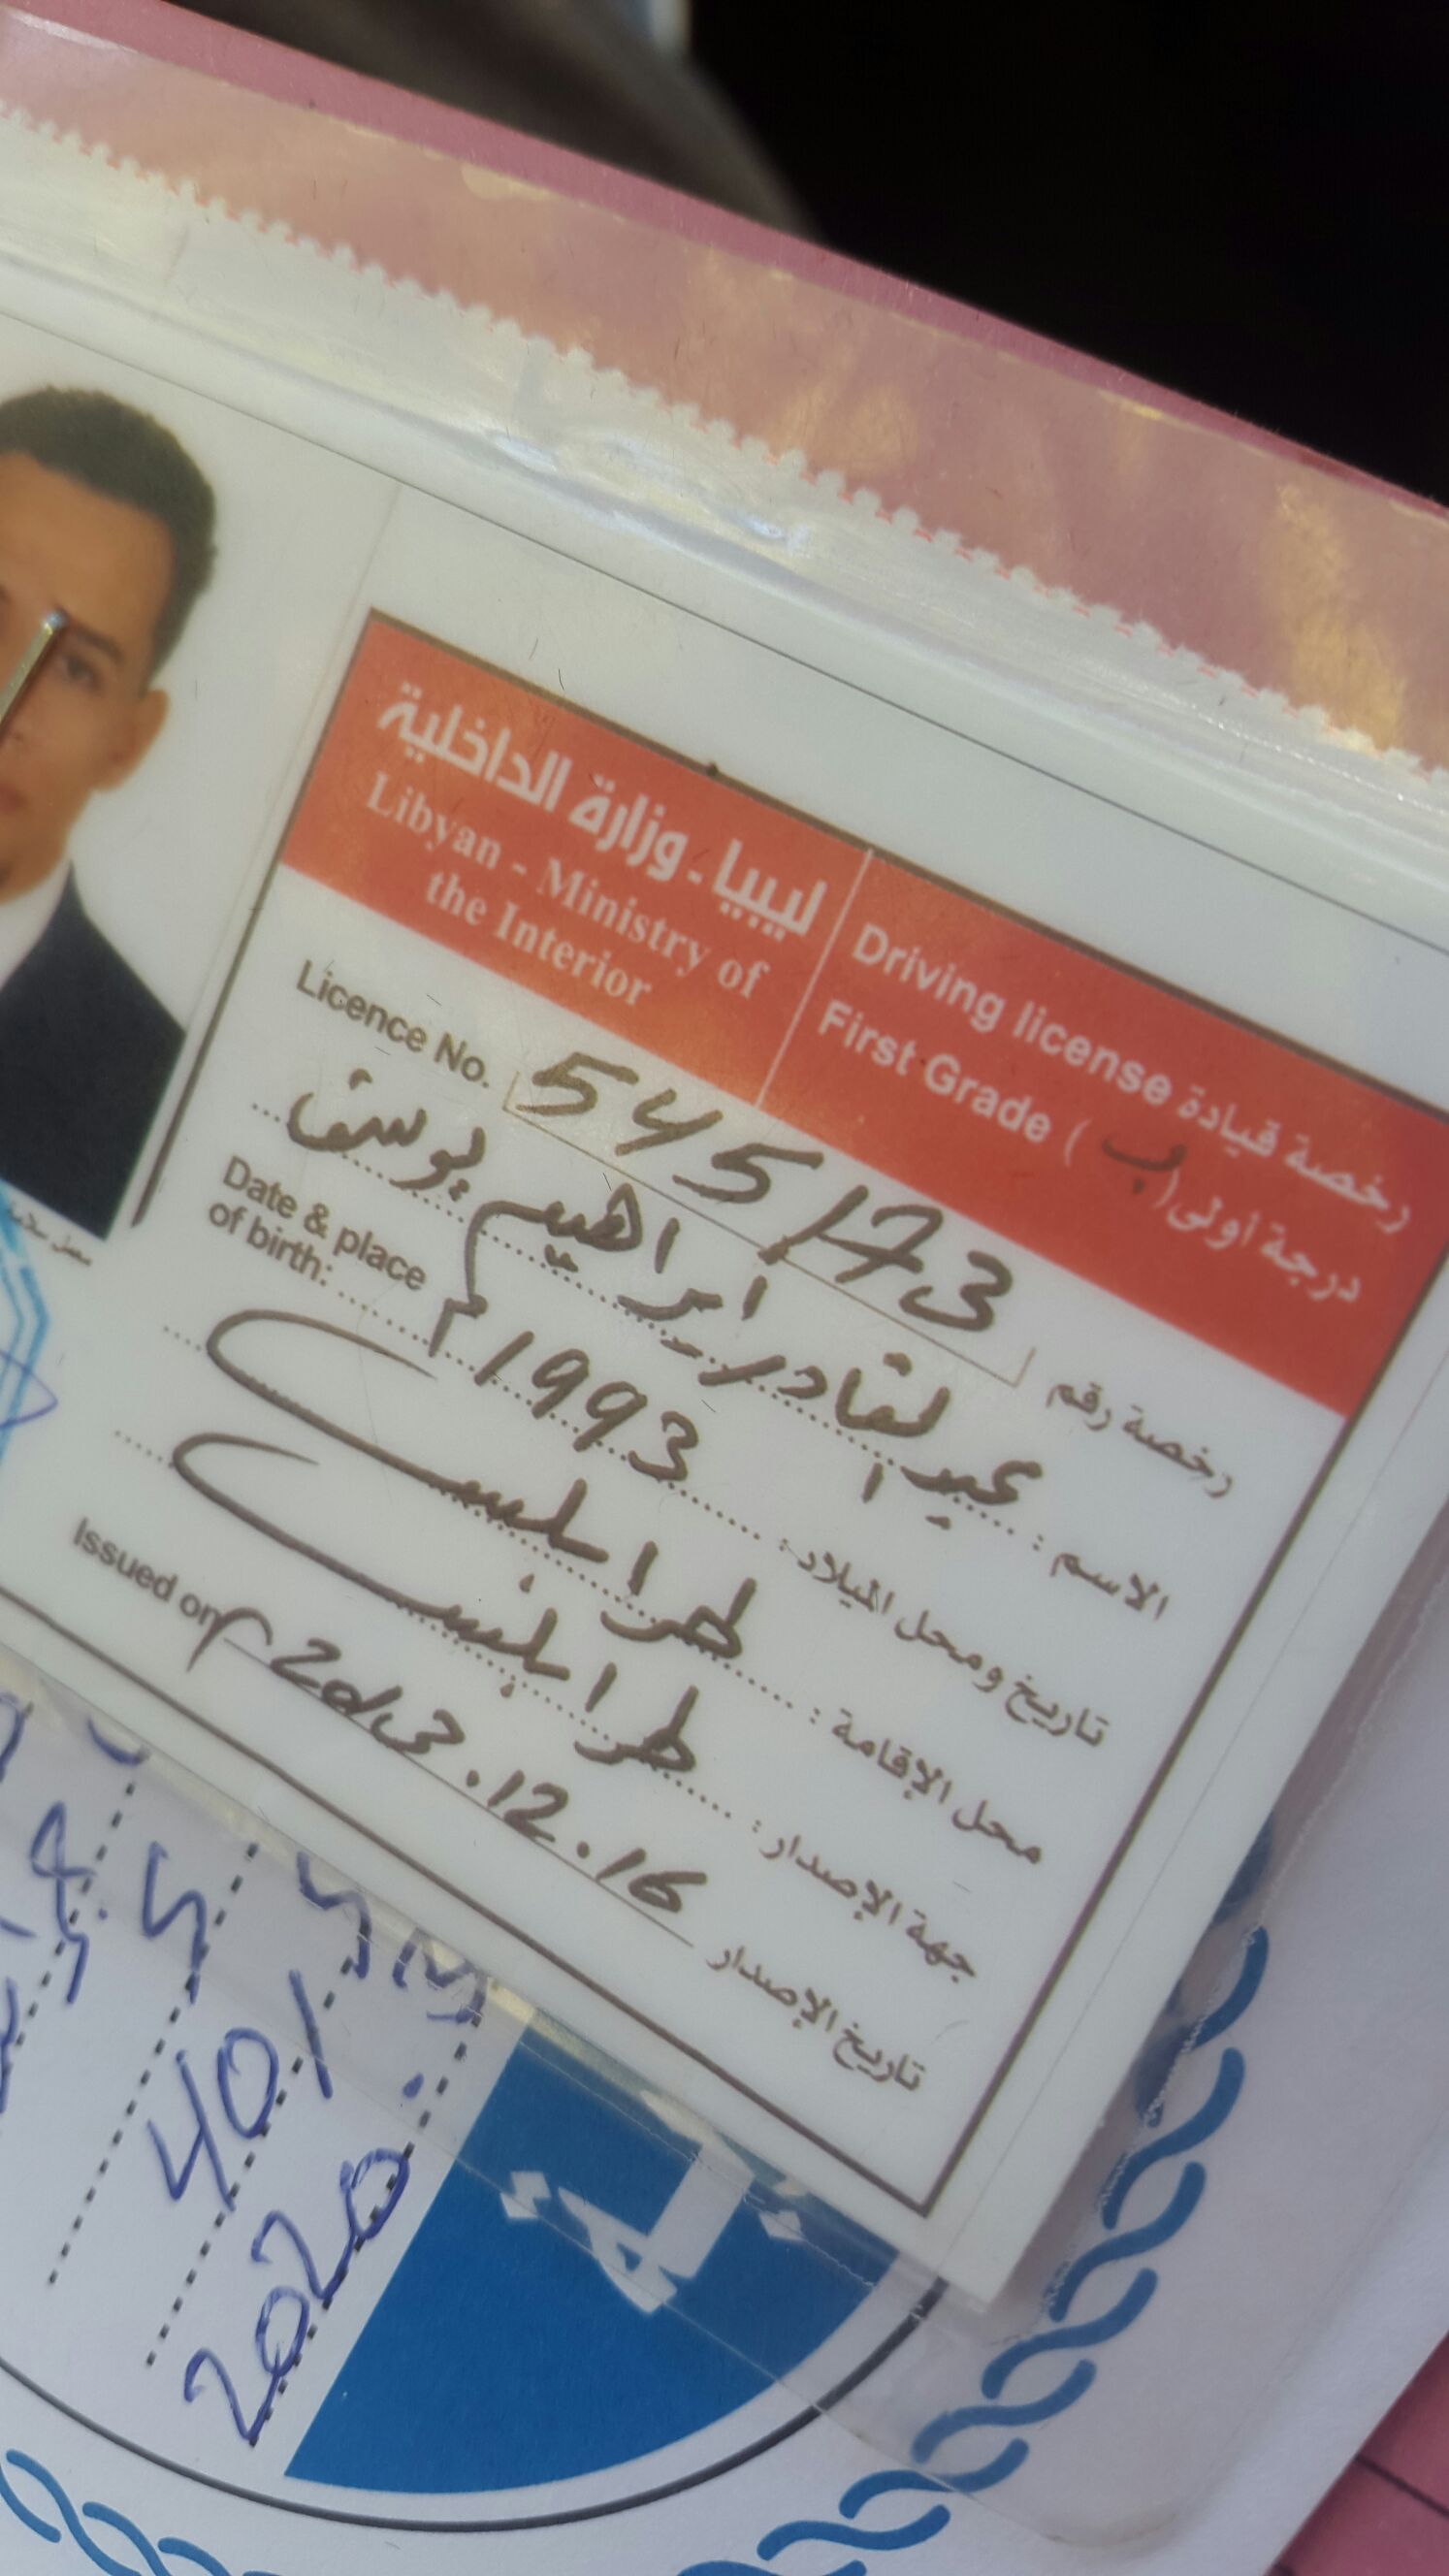 ليبيا - وزارة الداخلية
Libyan - Ministry of
the Interior
رخصة قيادة Driving license
درجة أولى (ب) First Grade
Licence No. 545173 رخصة رقم
الاسم : عبد القادر ابراهيم يوسف
Date & place
of birth:
تاريخ ومحل الميلاد : 1993 م
محل الإقامة : طرابلس
جهة الإصدار : طرابلس
Issued on 2013.12.16 م تاريخ الإصدار
401
2020